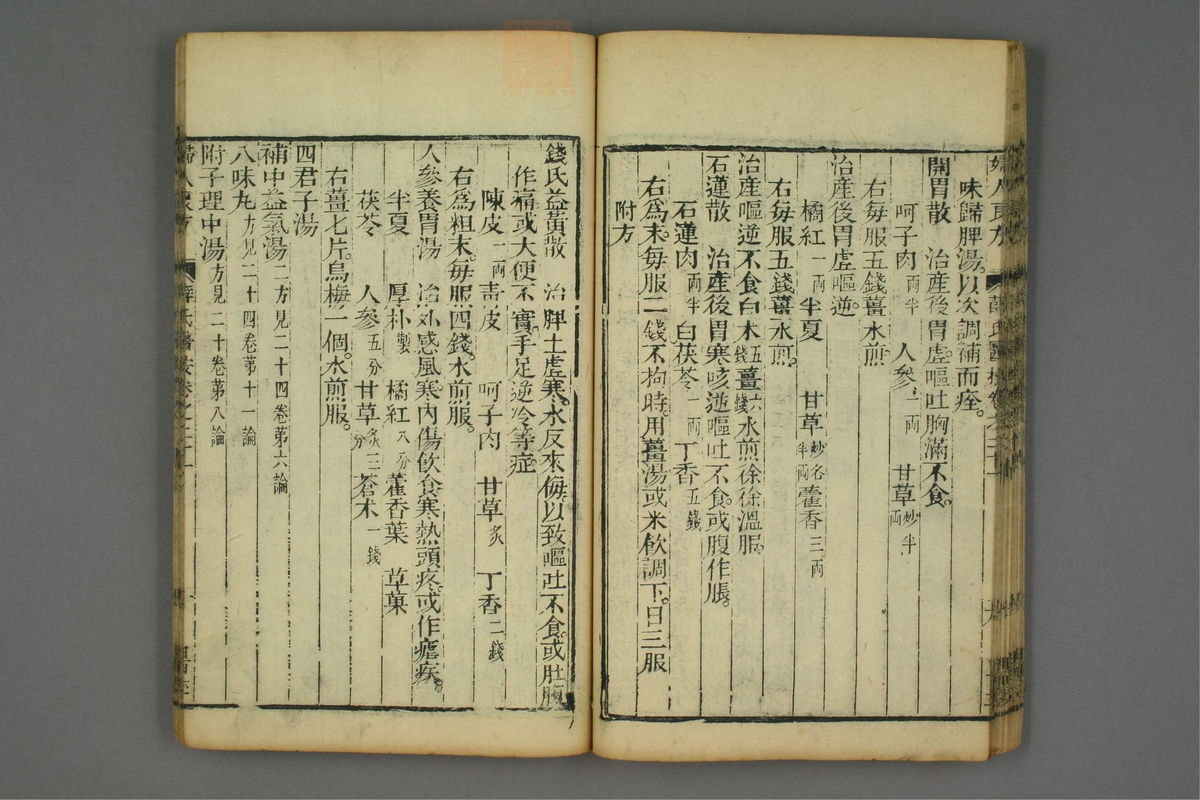 婦人良方
味歸脾湯以次調補而痊。
開胃散　治產後胃虛嘔吐胸滿不食。
呵子肉一兩半　人參一兩　甘草炒半兩
右每服五錢薑水煎
治產後胃虛嘔逆
橘紅一兩　半夏　甘草炒各半兩　藿香三兩
右每服五錢薑水煎。
治產嘔逆不食白术五錢薑六錢水煎徐徐溫服。
石蓮散　治產後胃寒咳逆嘔吐不食。或腹作脹。
石蓮肉兩半　白茯苓一兩　丁香五錢
右爲末。每服二錢不拘時。用薑湯或米飲調下。日三服
附方
錢氏益黃散　治脾土虛寒。水反來侮。以致嘔吐不食。或肚腹
作痛或大便不實。手足逆冷等症。
陳皮一兩　靑皮　呵子肉　甘草炙　丁香二錢
右爲粗末。每服四錢。水煎服。
人參養胃湯　治外感風寒內傷飲食寒熱頭疼。或作瘧疾。
半夏　厚朴製　橘紅八分　藿香葉　草菓
茯苓　人參五分　甘草炙三分　蒼术一錢
右薑七片。烏梅一個。水煎服。
四君子湯
補中益氣湯二方見二十四卷第六論
八味丸方見二十四卷第十一論
附子理中湯方見二十卷第八論